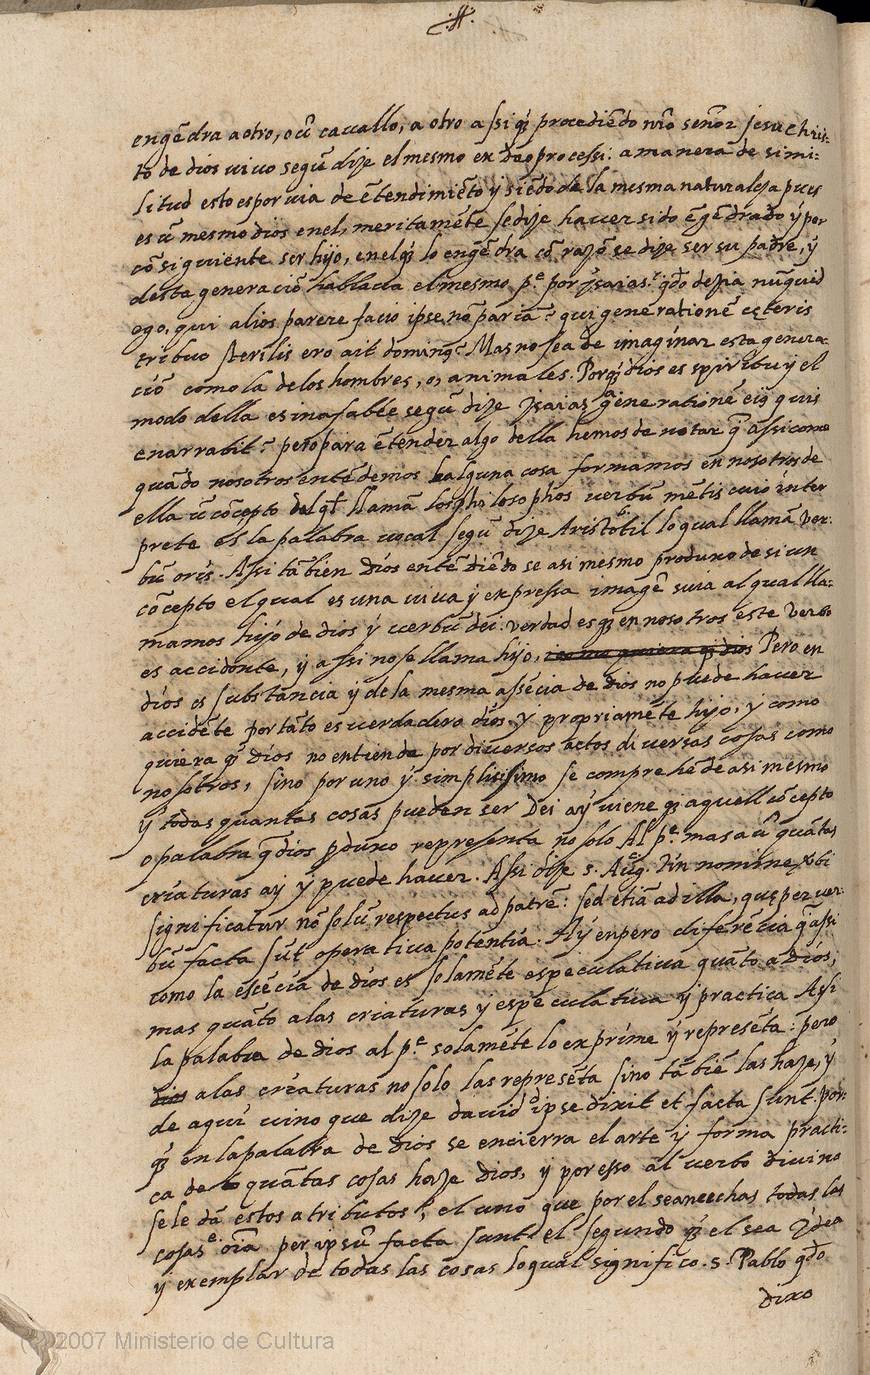 engēdra a otro, o ū cavallo, a otro assi q̄ procediēdo nr̄o señor Jesu chris-
to de dios vivo segū dize el mesmo ex deo processi: a manera de simi-
litud esto es por via de ētendimiēto y siēdo de la mesma naturaleza pues
es ū mesmo dios en el, meritamēte se dize haver sido ēgēdrado y por
cōsiguiente ser hijo, en el q̄ lo engēdra cō razō se dize ser su padre, y
desta generaciō hablada el mesmo p.e por ysaias. qdo dezia nunquid
ego, qui alios parere facio ipse nō pariā? qui generationē cęteris
tribuo sterilis ero ait dominus? Mas no sea de imaginar esta genera-
ciō como la de los hombres, o, animales. Porq̄ dios es spiritu y el
modo della es inafable segū dize ysaias generationē eius quis
enarrabit? pero para ētender algo della hemos de notar q̄ assi como
quādo nosotros entēdemos alguna cosa formamos en nosotros de
ella ū cōcepto del ql llamā los philosophos verbū mētis cuio inter
prete es la palabra vocal segū dize Aristotil lo qual llamā ver-
bū oris. Assi tābien Dios entēdiēdo se asi mesmo produxo de si un
cōcepto el qual es una viva y expressa imagē suia al qual lla-
mamos hijo de dios y verbū dei. verdad es q̄ en nosotros este verbo
es accidente, y assi no se llama hijo, Pero en
dios es substancia y de la mesma assēcia de Dios no puede haver
accidēte por tāto es verdadero dios, y propriamēte hijo, y como
quiera q̄ Dios no entiende por diversos actos diversas cosas como
nosotros, sino por uno y simplisisimo se comprehēde asi mesmo
y todas quantas cosas pueden ser Dei ay viene q̄ aquell cōcepto
o palabra q̄ dios pduxo representa no solo Al p.e mas a ū quātas
criaturas ay y puede haver. Assi dize s. Aug. In nomine verbi
significatur nō solū respectus ad patrē: sed etiā ad illa, quę per ver-
bū facta sūt operativa potentia. Ay enpero diferēcia q̄ assi
como la esēcia de dios es solamēte especulativa quāto a Dios,
mas quāto a las criaturas y especulativa y practica Assi
la palabra de dios al p.e solamēte lo exprime y represēta: pero
a las criaturas no solo las represēta sino tābiē las haze, y
de aqui vino que dize david ipse dixit et facta sunt. por-
q̄ en la palabra de Dios se encierra el arte y forma practi-
ca de quātas cosas haze Dios, y por esso al verbo divino
se le dā estos atributos, el uno que por el sean echas todas las
cosas oīa per ipsū facta sunt el segundo q̄ el sea ydea
y exemplar de todas las cosas lo qual significo. s. Pablo qdo
dixo
(C) 2007 Ministerio de Cultura